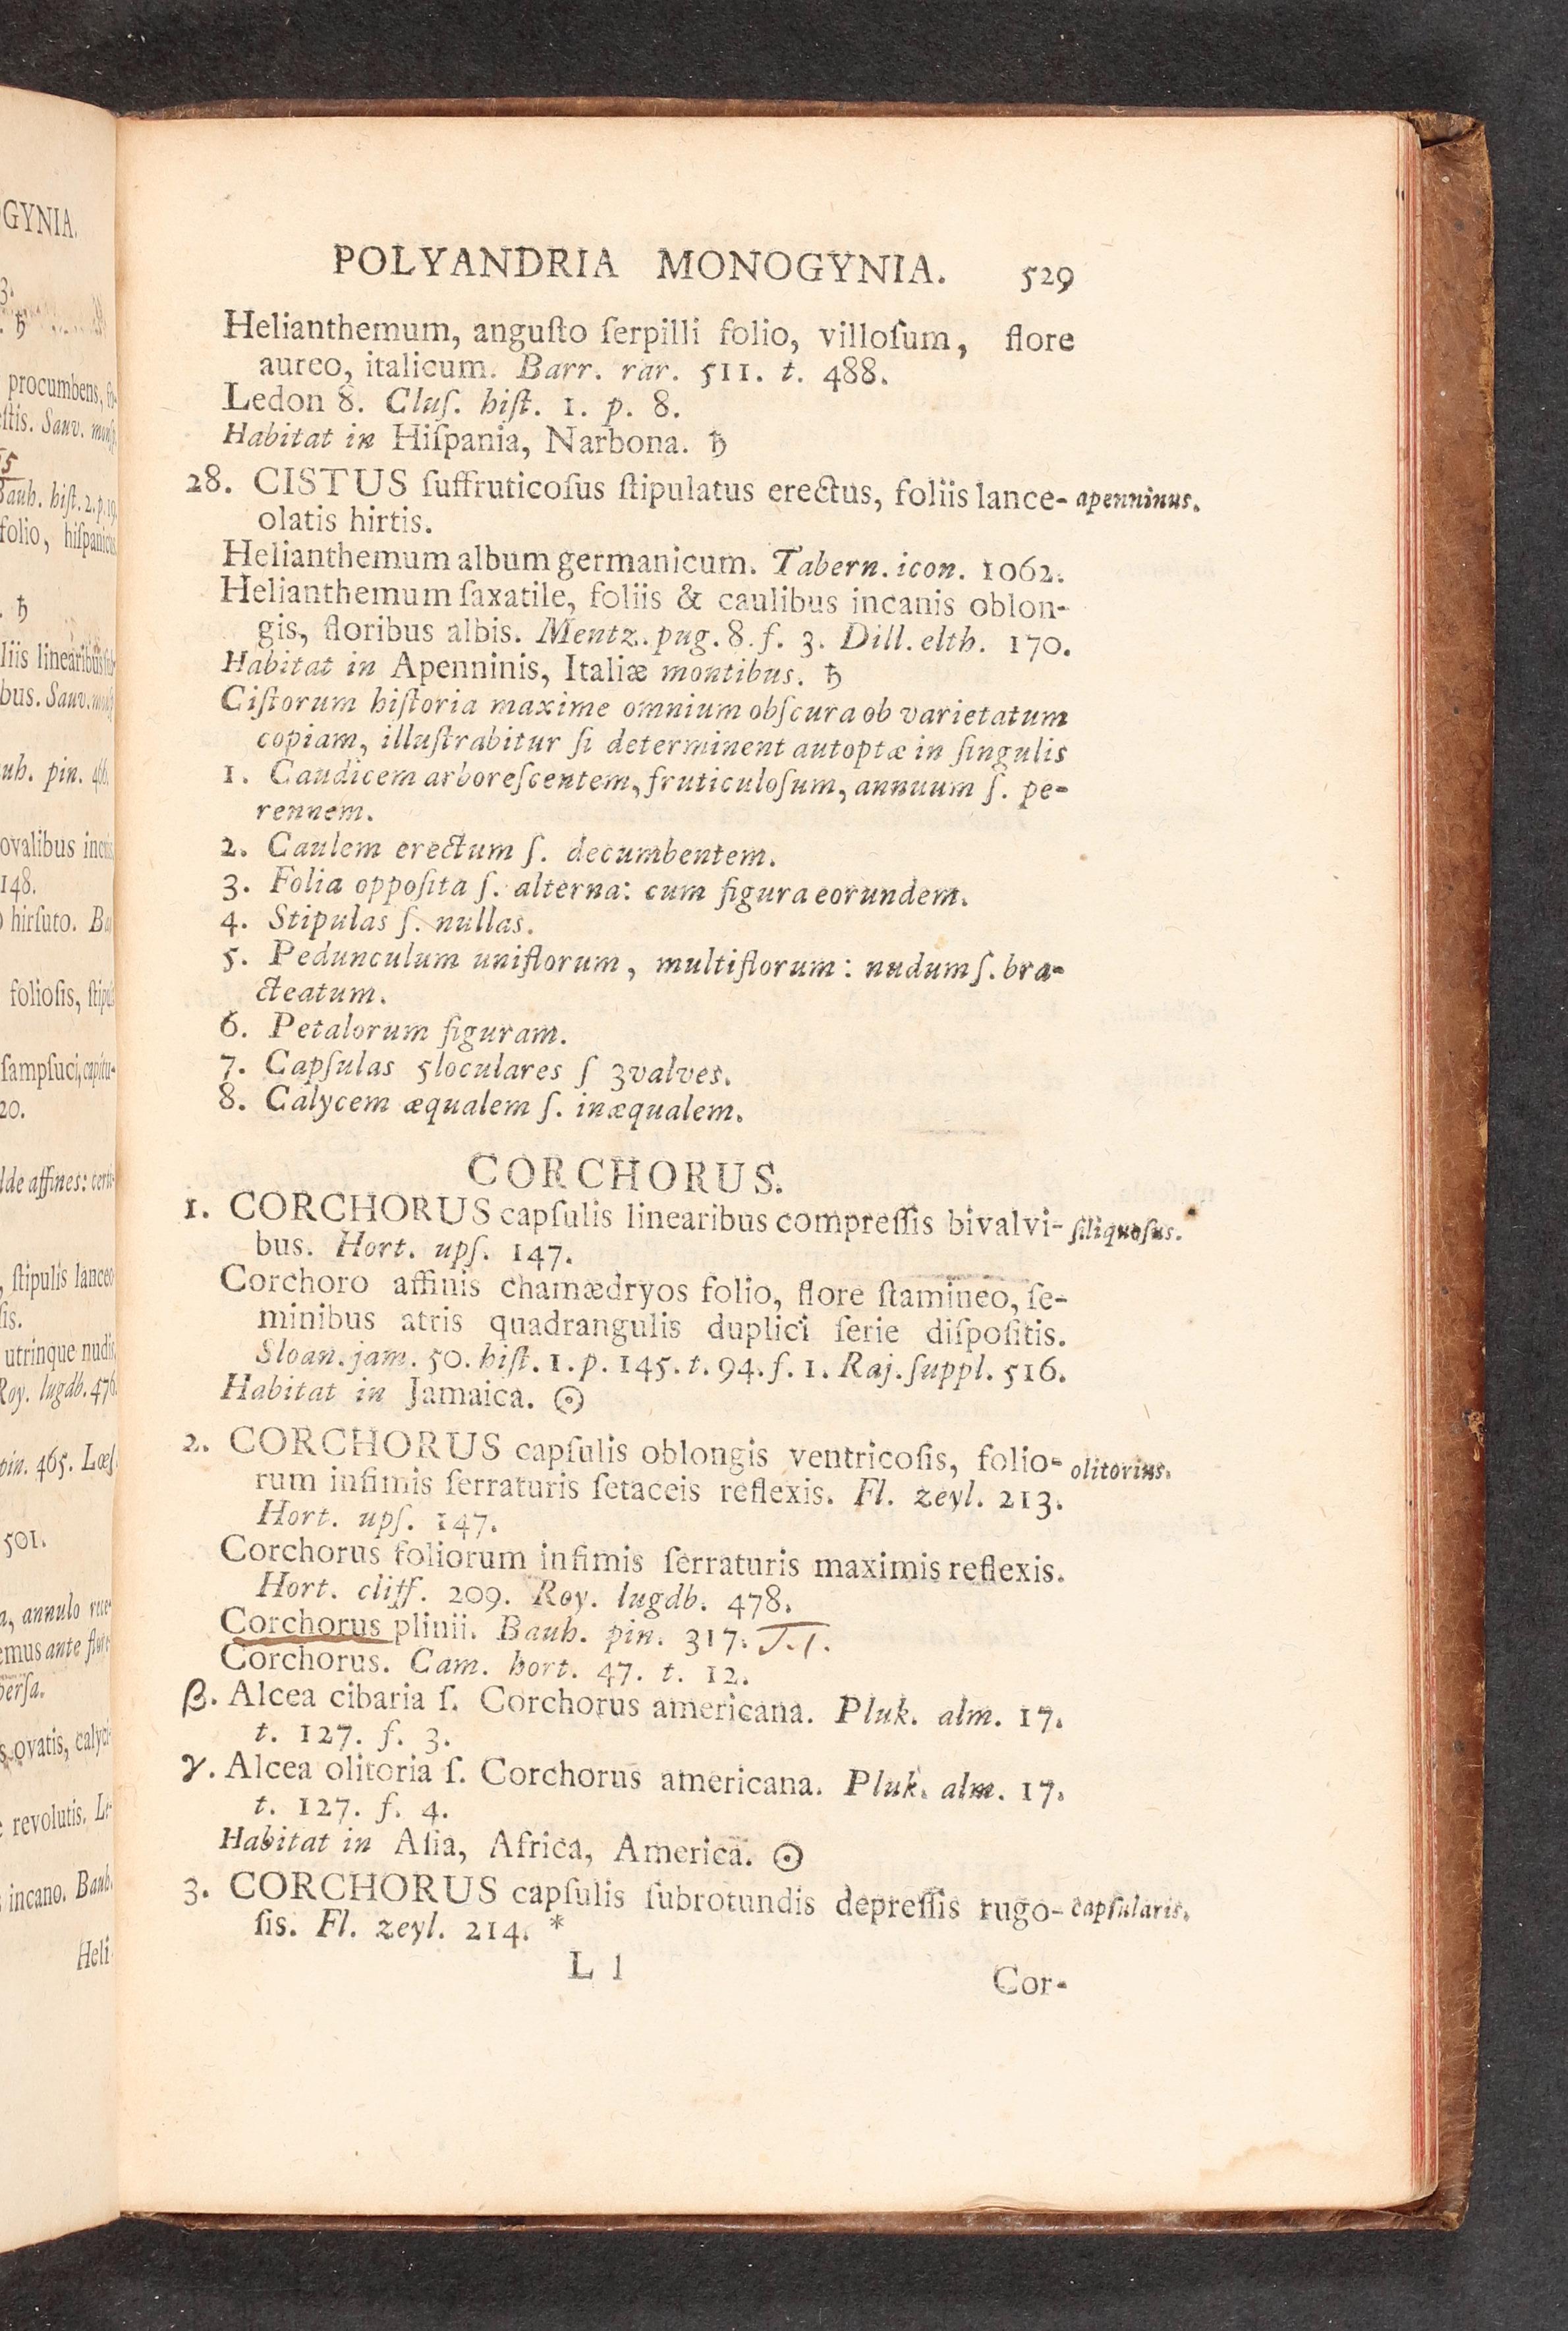 POLYANDRIA MONOGYNIA. 529
Helianthemum, anguſto ſerpilli folio, villoſum, flore
aureo, italicum. Barr. rar. 511. t. 488.
Ledon 8. Cluſ. hiſt. 1. p. 8.
Habitat in Hiſpania, Narbona. ♄
28. CISTUS ſuffruticoſus ſtipulatus erectus, foliis lance- apenninus.
olatis hirtis.
Helianthemum album germanicum. Tabern. icon. 1062.
Helianthemum ſaxatile, foliis & caulibus incanis oblon-
gis, floribus albis. Mentz. pug. 8. f. 3. Dill. elth. 170.
Habitat in Apenninis, Italiæ montibus. ♄
Ciſtorum hiſtoria maxime omnium obſcura ob varietatum
copiam, illuſtrabitur ſi determinent autoptæ in ſingulis
1. Caudicem arboreſcentem, fruticuloſum, annuum ſ. pe-
rennem.
2. Caulem erectum ſ. decumbentem.
3. Folia oppoſita ſ. alterna: cum figura eorundem.
4. Stipulas ſ. nullas.
5. Pedunculum uniflorum, multiflorum: nudum ſ. bra-
cteatum.
6. Petalorum figuram.
7. Capſulas 5loculares ſ 3valves.
8. Calycem æqualem ſ. inæqualem.
CORCHORUS.
1. CORCHORUS capſulis linearibus compreſſis bivalvi- ſiliquoſus.
bus. Hort. upſ. 147.
Corchoro affinis chamædryos folio, flore ſtamineo, ſe-
minibus atris quadrangulis duplici ſerie diſpoſitis.
Sloan. jam. 50. hiſt. 1. p. 145. t. 94. f. 1. Raj. ſuppl. 516.
Habitat in Jamaica. ☉
2. CORCHORUS capſulis oblongis ventricoſis, folio- olitorius.
rum infimis ſerraturis ſetaceis reflexis. Fl. zeyl. 213.
Hort. upſ. 147.
Corchorus foliorum infimis ſerraturis maximis reflexis.
Hort. cliff. 209. Roy. lugdb. 478.
Corchorus plinii. Bauh. pin. 317. J.1.
Corchorus. Cam. hort. 47. t. 12.
β. Alcea cibaria ſ. Corchorus americana. Pluk. alm. 17.
t. 127. f. 3.
γ. Alcea olitoria ſ. Corchorus americana. Pluk. alm. 17.
t. 127. f. 4.
Habitat in Aſia, Africa, America. ☉
3. CORCHORUS capſulis ſubrotundis depreſſis rugo- capſularis.
ſis. Fl. zeyl. 214. *
L l
Cor-